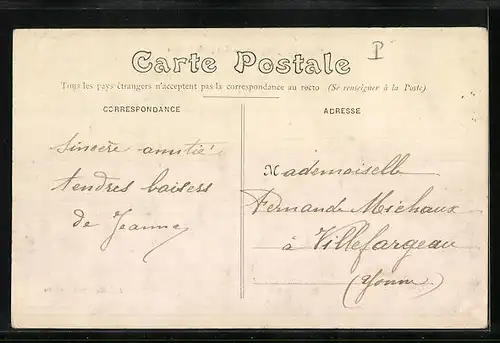 P
Carte Postale
Tous les pays étrangers n'acceptent pas la correspondance au recto (Se renseigner à la Poste)
CORRESPONDANCE
ADRESSE
Sincère amitié
tendres baisers
de Jeanne
Mademoiselle
Fernande Michaux
à Villefargeau
(Yonne)